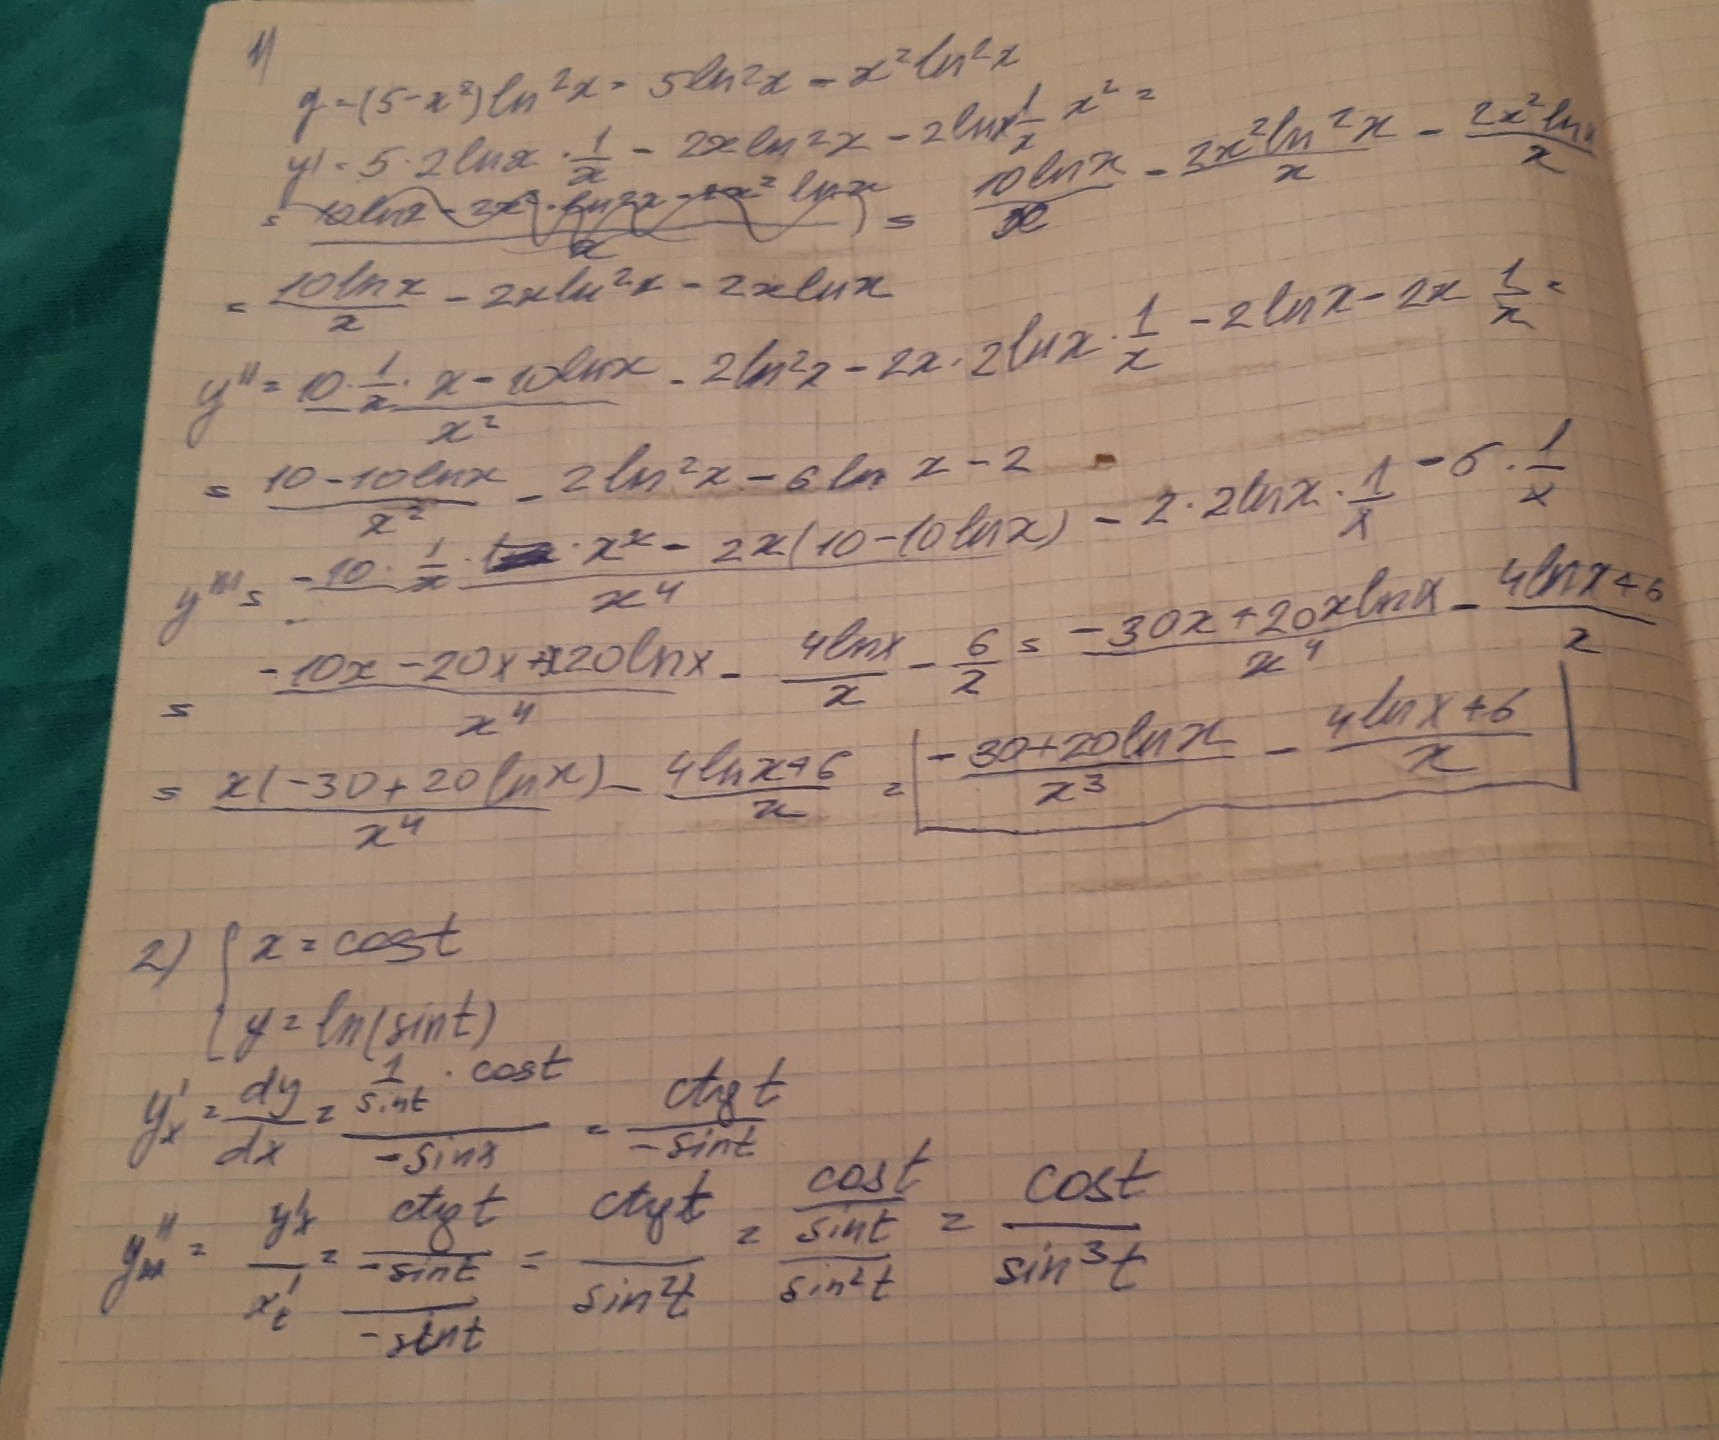 1)
y = (5-x²)ln²x = 5ln²x - x²ln²x
y' = 5·2lnx · 1/x - 2xln²x - 2lnx 1/x x² =
= = 10lnx/x - 2x²ln²x/x - 2x²lnx/x
= 10lnx/x - 2xln²x - 2xlnx
y'' = (10·1/x·x - 10lnx)/x² - 2ln²x - 2x·2lnx·1/x - 2lnx - 2x 1/x =
= (10-10lnx)/x² - 2ln²x - 6ln x - 2
y''' = (-10·1/x · x² - 2x(10-10lnx))/x⁴ - 2·2lnx·1/x - 6·1/x
= (-10x - 20x + x20lnx)/x⁴ - 4lnx/x - 6/x = (-30x+20xlnx)/x⁴ - (4lnx+6)/x
= x(-30+20lnx)/x⁴ - (4lnx+6)/x = (-30+20lnx)/x³ - (4lnx+6)/x
2) { x = cost
y = ln(sint)
y'ₓ = dy/dx = (1/sint · cost)/(-sinx) = ctgt/(-sint)
y''ₓₓ = y'ₓ/x'ₜ = (ctgt/(-sint))/(-sint) = ctgt/sin²t = (cost/sint)/sin²t = cost/sin³t